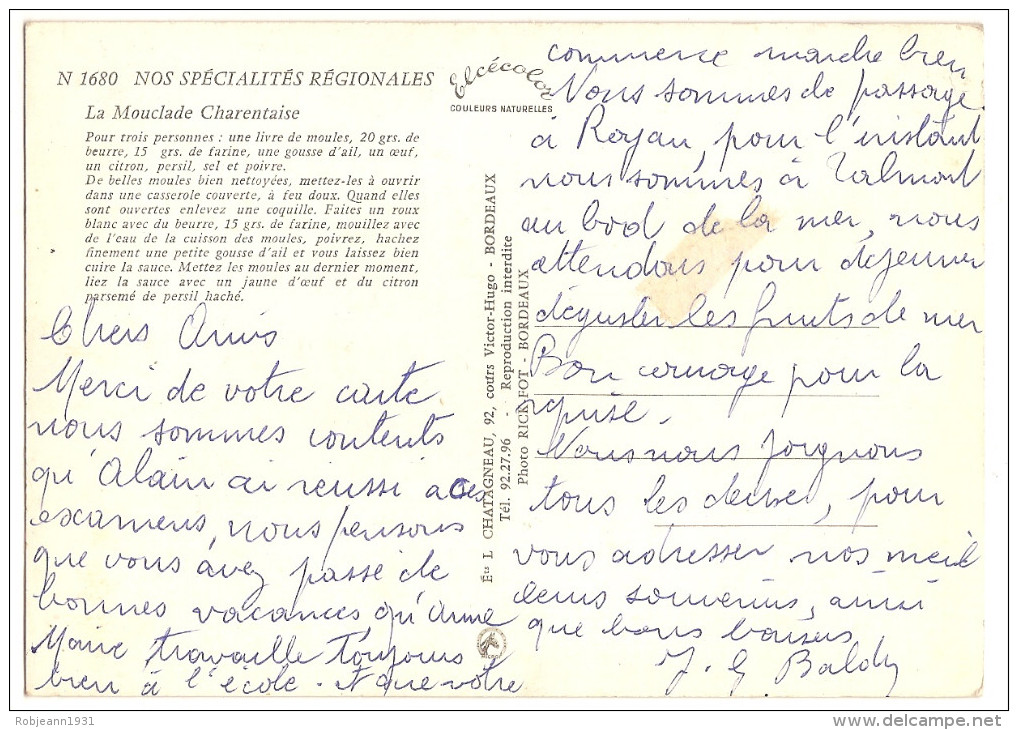 N 1680 NOS SPÉCIALITÉS RÉGIONALES
La Mouclade Charentaise
Pour trois personnes : une livre de moules, 20 grs. de
beurre, 15 grs. de farine, une gousse d'ail, un œuf,
un citron, persil, sel et poivre.
De belles moules bien nettoyées, mettez-les à ouvrir
dans une casserole couverte, à feu doux. Quand elles
sont ouvertes enlevez une coquille. Faites un roux
blanc avec du beurre, 15 grs. de farine, mouillez avec
de l'eau de la cuisson des moules, poivrez, hachez
finement une petite gousse d'ail et vous laissez bien
cuire la sauce. Mettez les moules au dernier moment,
liez la sauce avec un jaune d'œuf et du citron
parsemé de persil haché.
Chers Amis
Merci de votre carte
nous sommes contents
qu'Alain ai reussi a ces
examens, nous pensons
que vous avez passé de
bonnes vacances qu'Anne
Marie travaille toujours
bien à l'école. et que votre
Elcécolor
COULEURS NATURELLES
Éts L. CHATAGNEAU, 92, cours Victor-Hugo - BORDEAUX
Tél. 92.27.96 - Reproduction interdite
Photo RICK FOT - BORDEAUX
commerce marche bien
Nous sommes de passage
à Royan, pour l'instant
nous sommes à Talmont
au bod de la mer, nous
attendons pour déjeuner
déguster les fruits de mer
Bon courage pour la
rquise.
Nous nous joignons
tous les deuse, pour
vous adresser nos meil
leurs souvenirs, ainsi
que bons baisers
J. G Baldy
Robjeann1931
www.delcampe.net